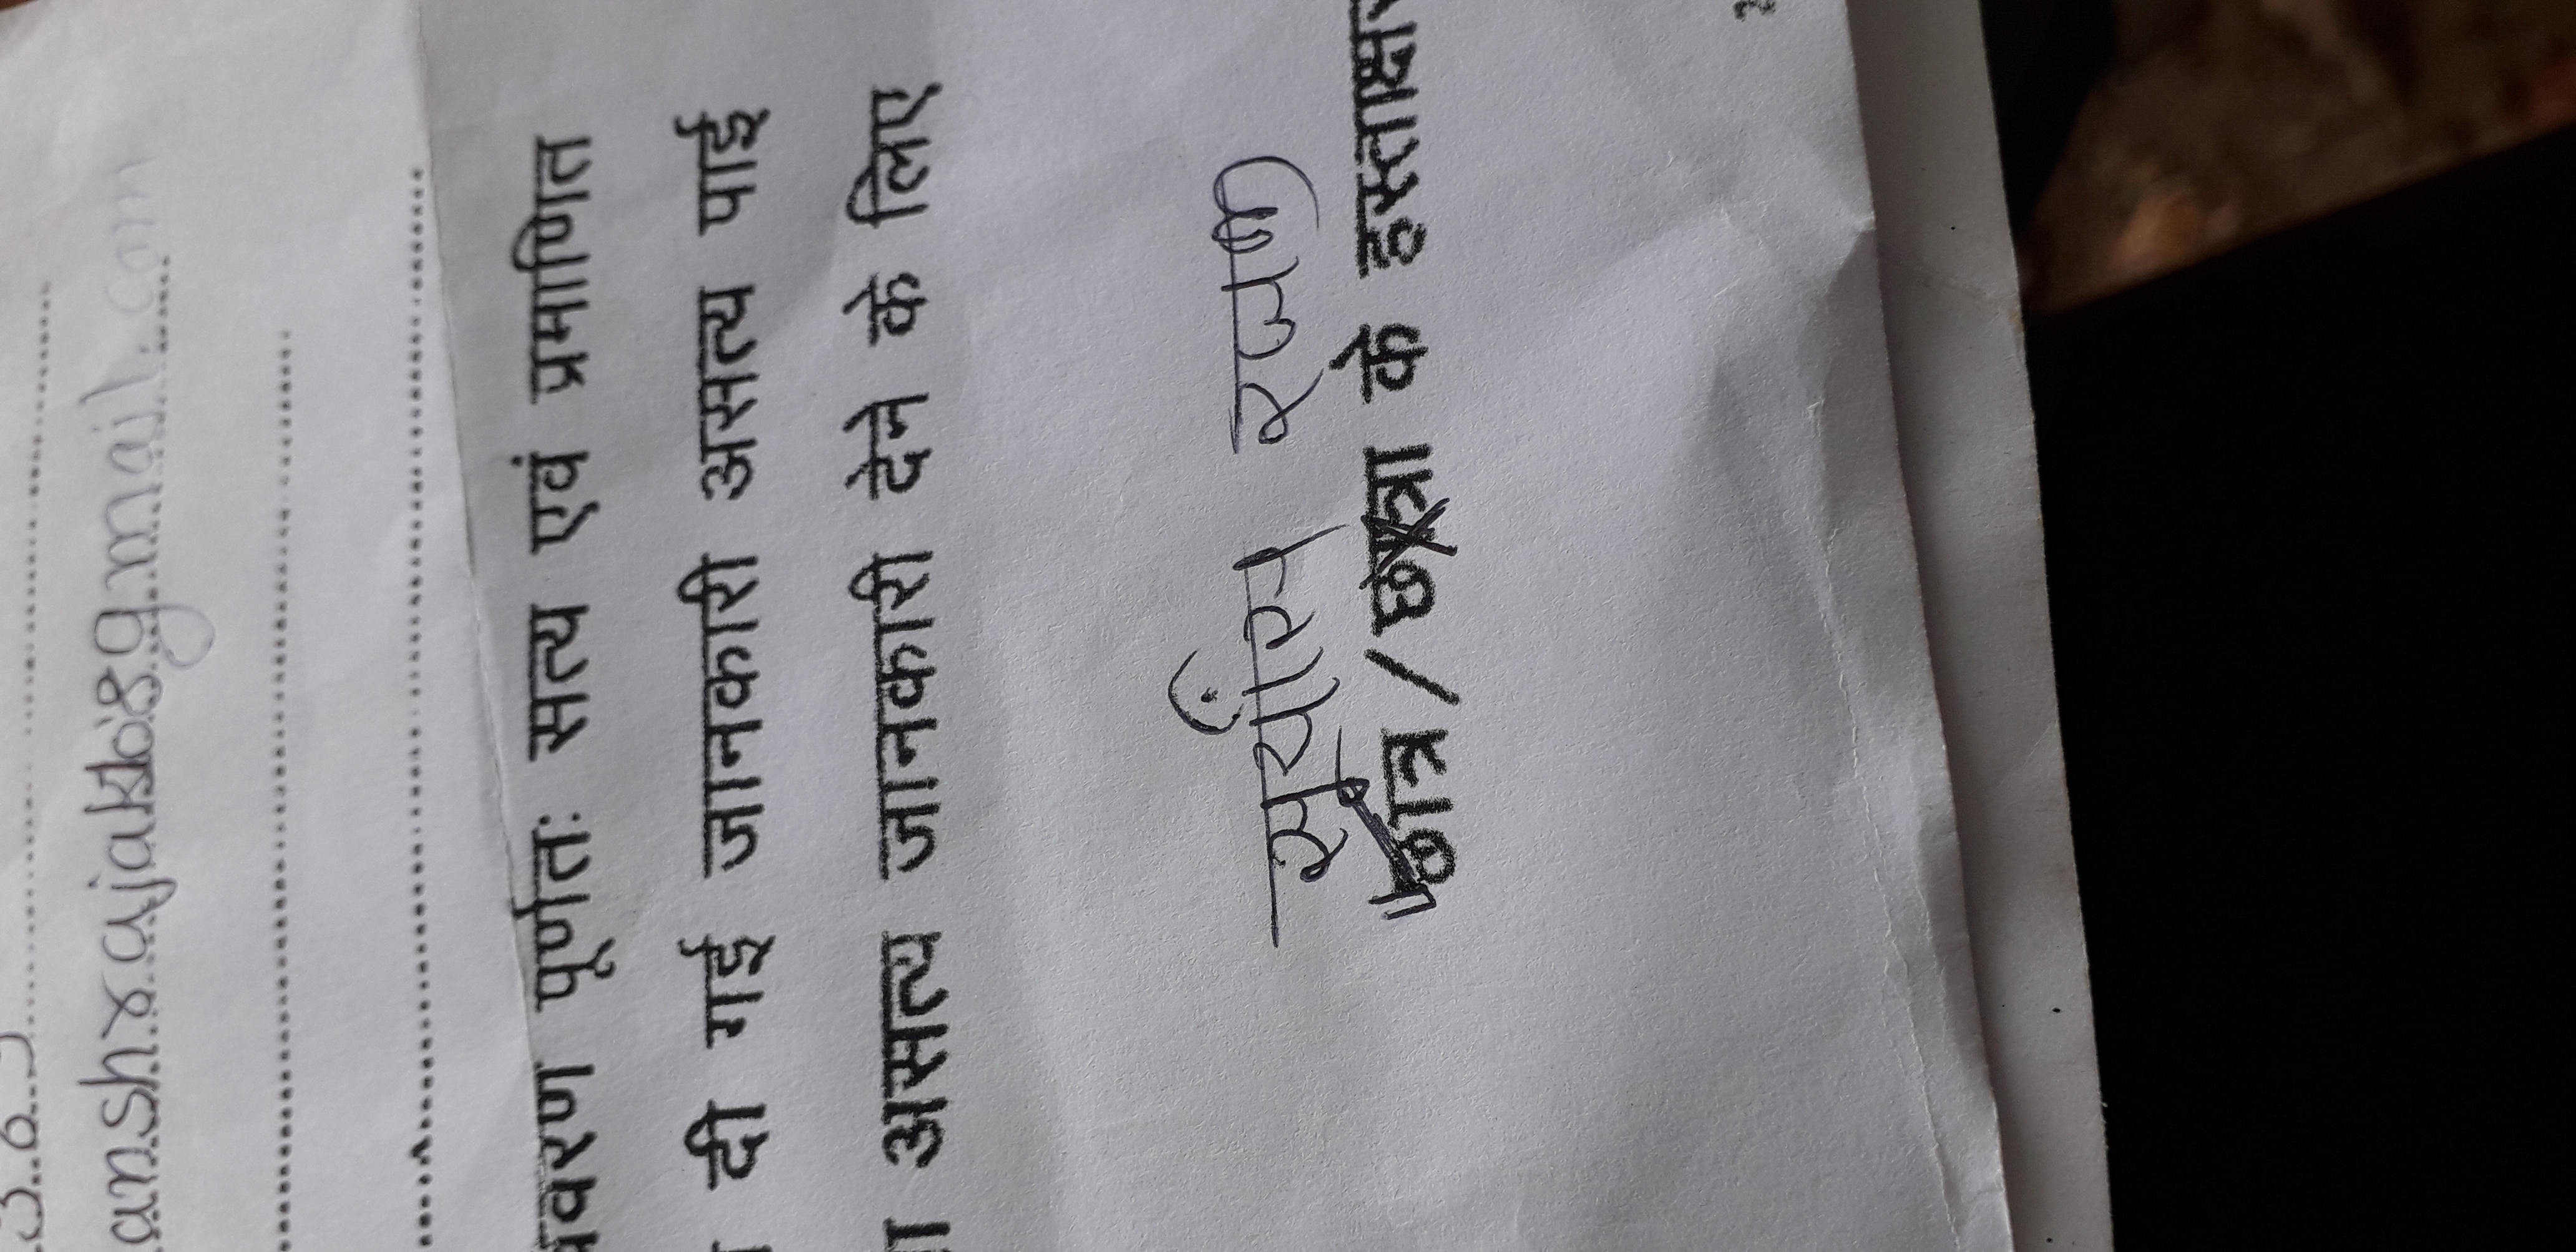 anshrajak1089gmail.com
विवरण पूर्णतः सत्य एवं प्रमाणित
दी गई जानकारी असत्य पाई
असत्य जानकारी देने के लिए
सूर्यांश रजक
छात्र / छात्रा के हस्ताक्षर